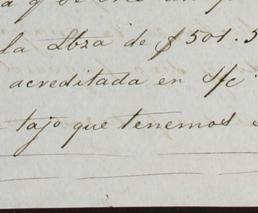 la Lbza de $ 501.5
acreditada en S/c
tajo que tenemos